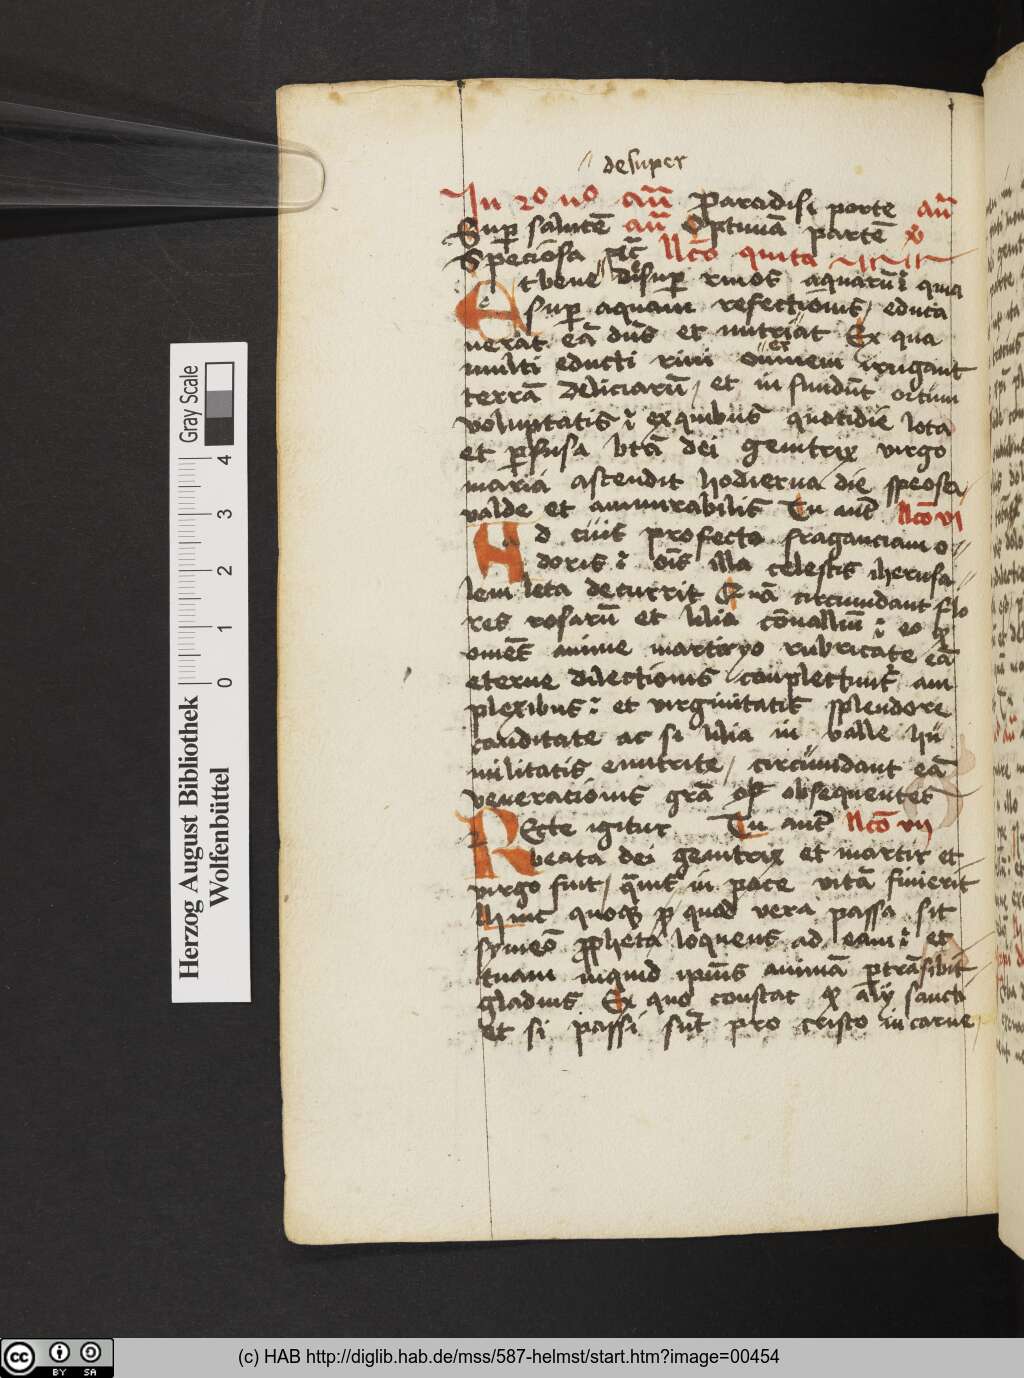 desuper
In 2o no an̄ Paradisi porte an̄
Sup salutē an̄ Optimā partē v̄
Speciosa sic̄ llc̄o quīta
Et bene desup riuos aquarū quia
sup aquam refectionis educa
uerat eā dn̄s et nutriat Ex qua
multi educti riui om̄em irrigant
terrā deliciarū et in fundūt ortum
voluptatis exquibus quotidie lota
et pfusa btā dei genitrix virgo
maria ascendit hodierna die speosa
valde et ammirabilis Tu aut̄ llc̄o vi
Ad cuis profecto fraganciam o
doris oīs illa celestis iherusa
lem leta decurrit Quā circumdant flo
res rosarū et lilia cōuallium eo q
omēs anime martiryo rubricate eā
eterne dilectionis complectunt̄ am
plexibus et virginitatis splendore
canditate ac si lilia in valle hu
militatis enutrite circūmdant eā
venerationis grā obsequentes
REcte igitur Tu aut̄ llc̄o vii
beata dei genitrix et martir et
virgo fuit quīs in pace vitā finierit
Hinc quoq p quod vera passa sit
symeō ppheta loquens ad eam et
tuam inquid ipius animā ptrāsibit
gladius Ex quo constat q alij sancti
et si passi sūt pro cristo in carne
Herzog August Bibliothek
Wolfenbüttel
Gray Scale
0 1 2 3 4
cc BY SA
(c) HAB http://diglib.hab.de/mss/587-helmst/start.htm?image=00454